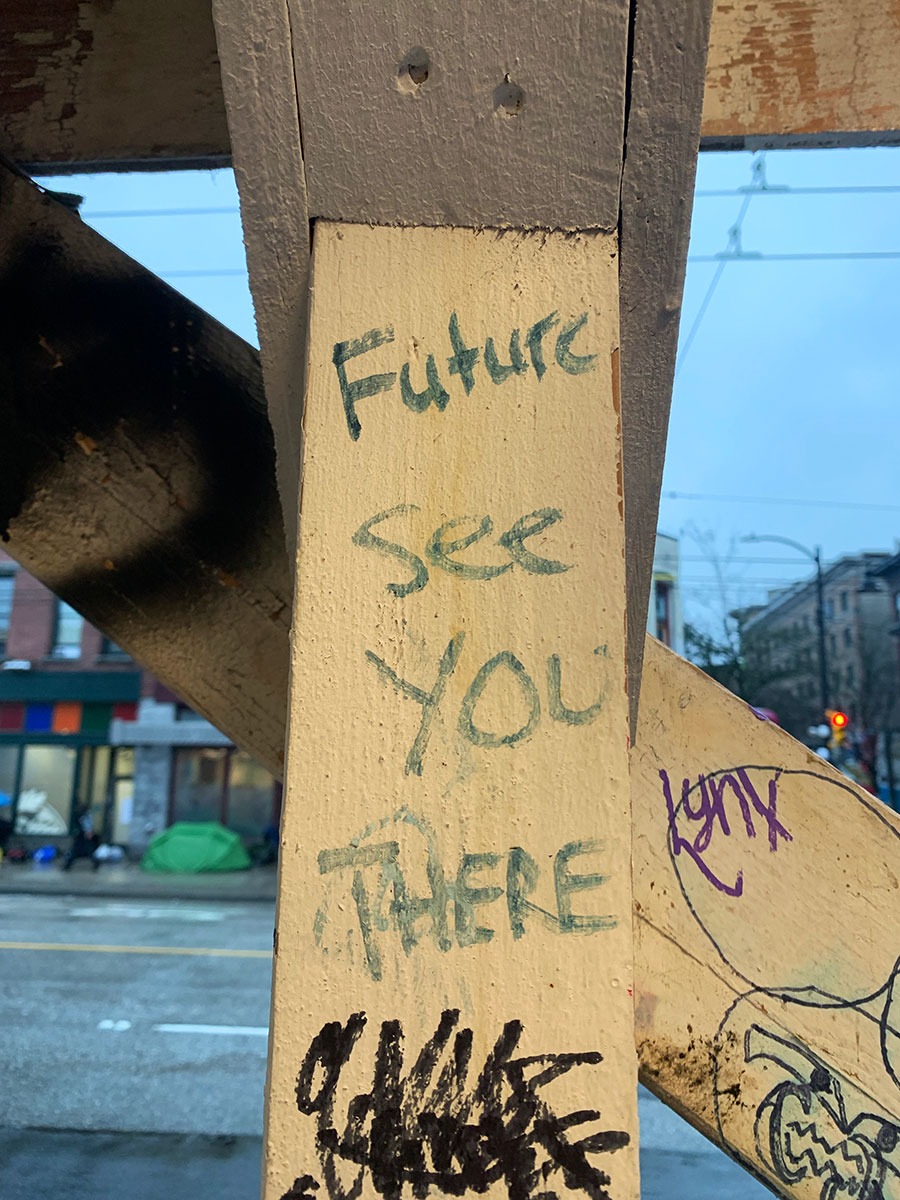 Future
see
YOU
THERE
Lynx